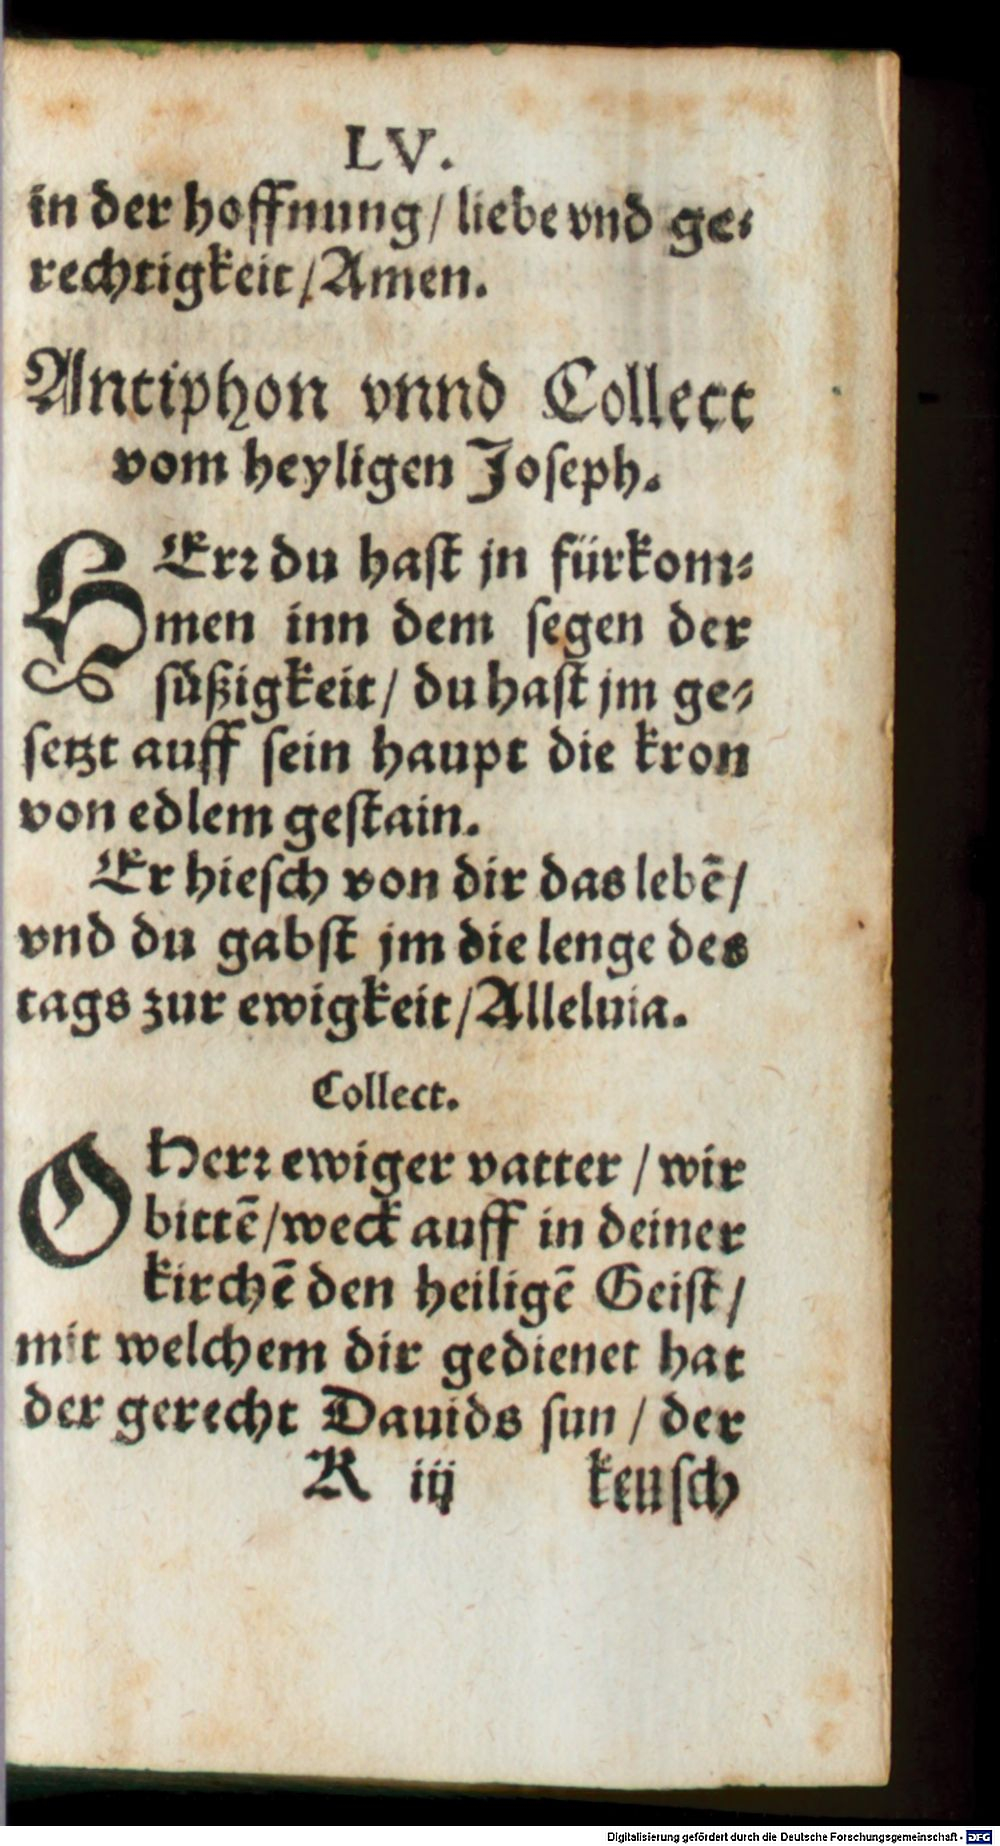 LV.
in der hoffnung / liebe vnd ge⸗
rechtigkeit / Amen.
Antiphon vnnd Collect
vom heyligen Joseph.
HErꝛ du hast jn fürkom⸗
men inn dem segen der
süßigkeit / du hast jm ge⸗
setzt auff sein haupt die kron
von edlem gestain.
Er hiesch von dir das lebẽ /
vnd du gabst jm die lenge des
tags zur ewigkeit / Alleluia.
Collect.
O Herꝛ ewiger vatter / wir
bittẽ / weck auff in deiner
kirchẽ den heiligẽ Geist /
mit welchem dir gedienet hat
der gerecht Dauids sun / der
R iij keusch
Digitalisierung gefördert durch die Deutsche Forschungsgemeinschaft - DFG